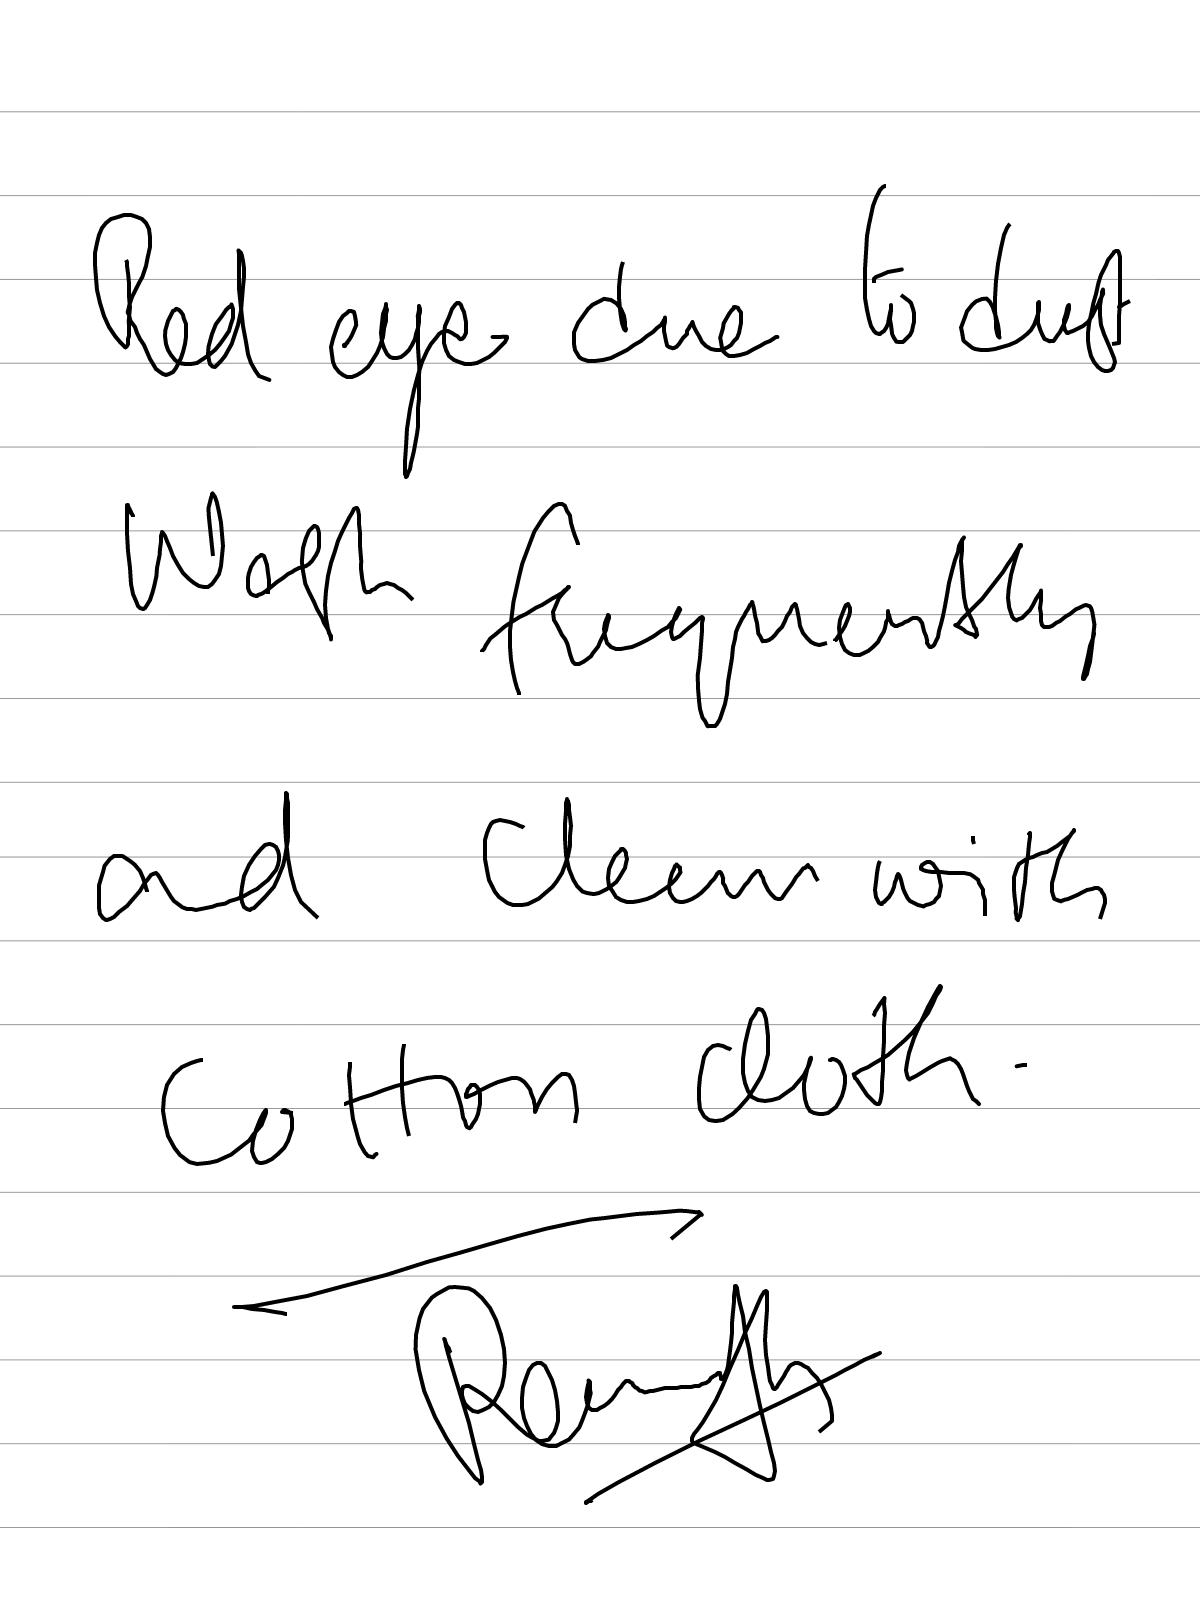 Red eye due to dust
Wash frequently
and Clean with
Cotton cloth.